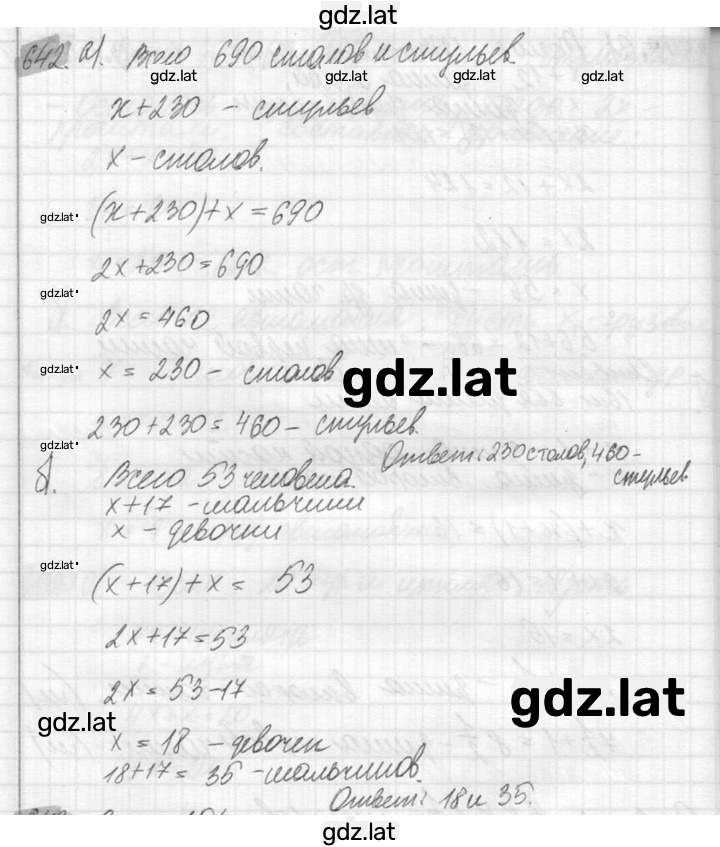 gdz.lat
642. а). Всего 690 столов и стульев.
gdz.lat gdz.lat gdz.lat gdz.lat
x+230 - стульев
x - столов.
gdz.lat (x+230)+x = 690
2x+230=690
gdz.lat
2x = 460
gdz.lat x = 230 - столов
gdz.lat
230+230=460 - стульев.
Ответ: 230 столов, 460 -
стульев
б. Всего 53 человека.
x+17 - мальчики
x - девочки
gdz.lat (x+17)+x = 53
2x+17=53
2x = 53-17
gdz.lat
gdz.lat
x = 18 - девочек
18+17= 35 - мальчиков.
Ответ: 18 и 35.
gdz.lat